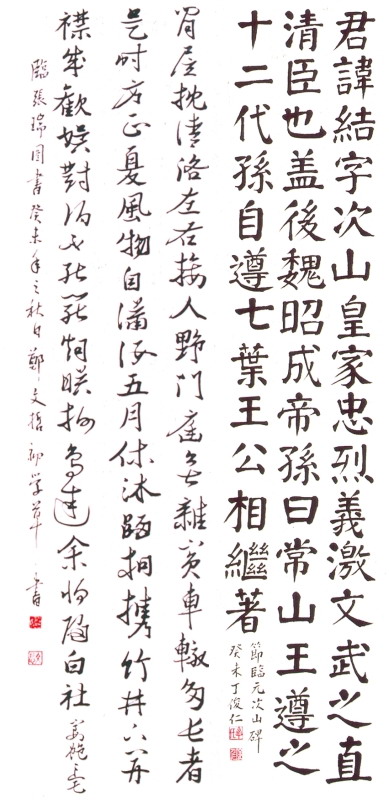 君諱結字次山皇家忠烈義激文武之直
清臣也盖後魏昭成帝孫曰常山王遵之
十二代孫自遵七葉王公相繼著
節臨元次山碑
癸未丁俊仁
居枕清洛左右接人野門庭無雜賓車轍多長者
是時方正夏風物自瀟洒五月休沐歸相携竹林下開
襟成歡娛對酒不能罷烟暝栖鳥迷余將歸白社
臨張瑞圖書癸未年之秋日鄭文哲初學草書